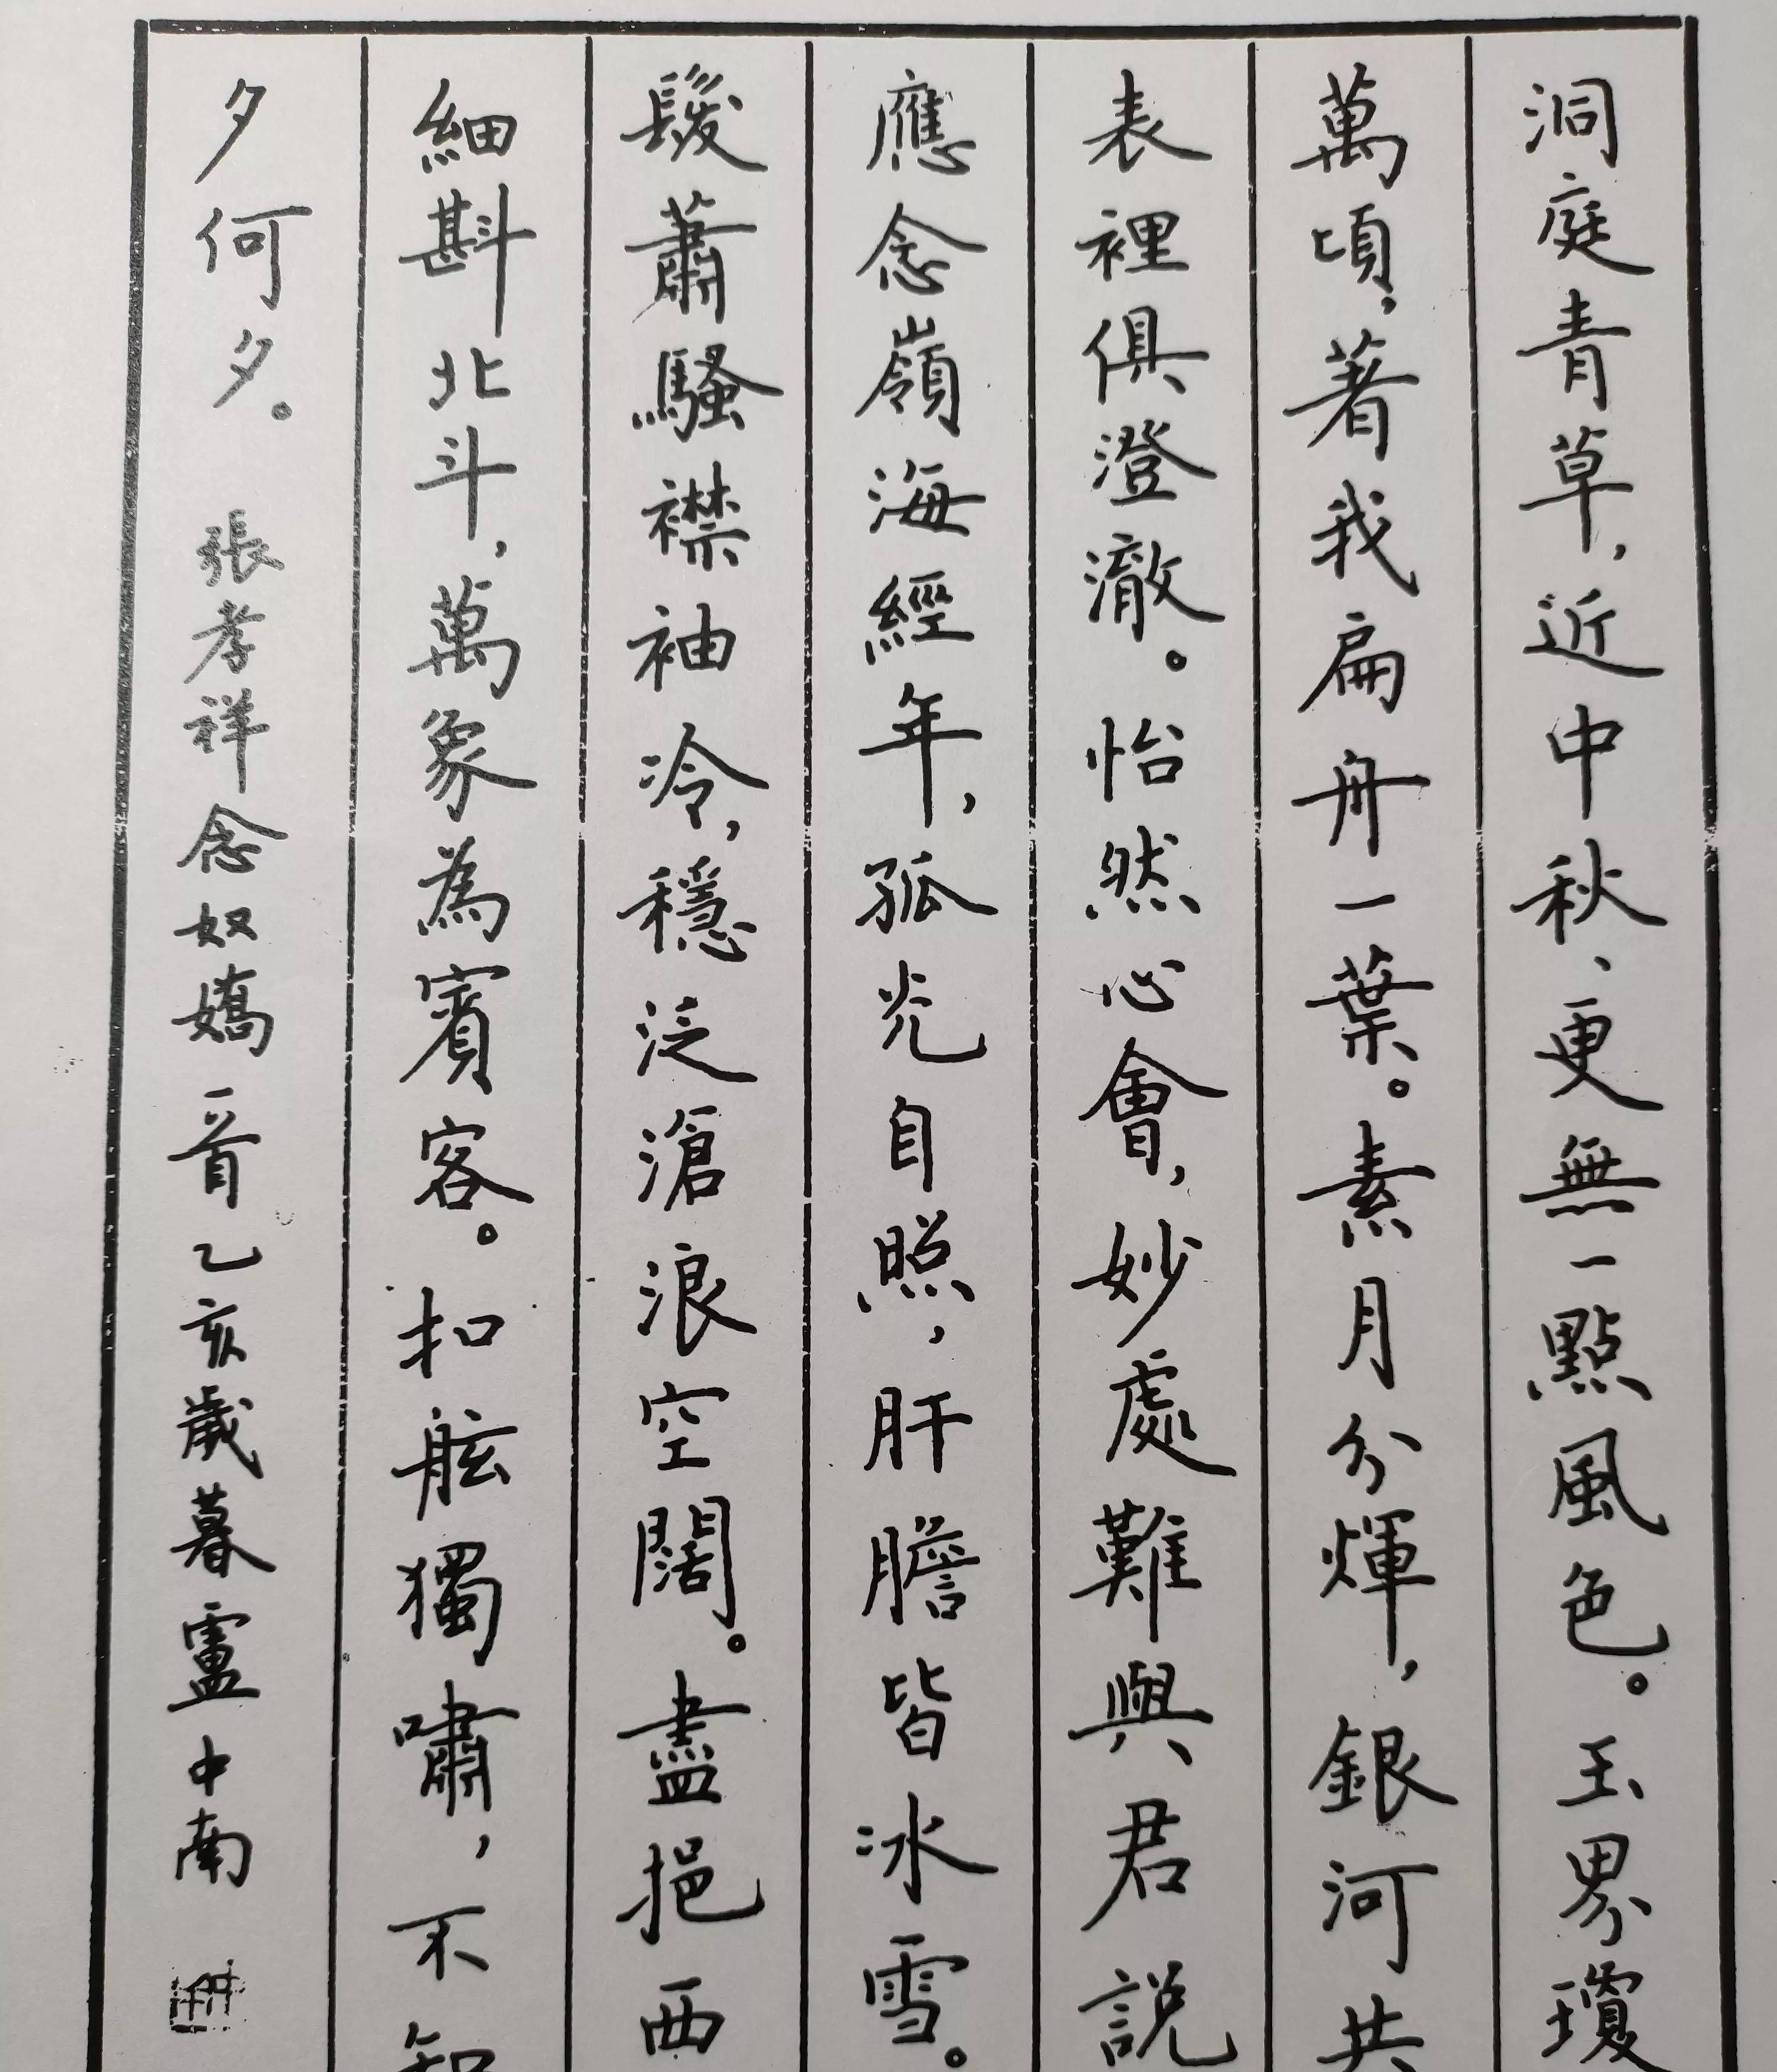 洞庭青草，近中秋、更無一點風色。玉界瓊
萬頃，著我扁舟一葉。素月分輝，銀河共
表裡俱澄澈。怡然心會，妙處難與君說
應念嶺海經年，孤光自照，肝膽皆冰雪。
髮蕭騷襟袖冷，穩泛滄浪空闊。盡挹西
細斟北斗，萬象為賓客。扣舷獨嘯，不知
夕何夕。 張孝祥念奴嬌一首乙亥歲暮盧中南